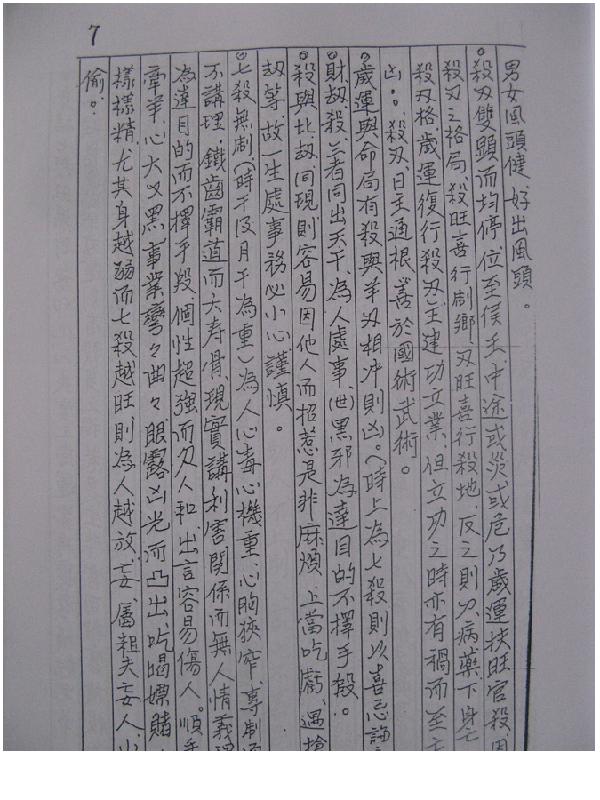 7
男女風頭健、好出風頭。
。殺刃雙顯而均停、位至侯王、中途或災或危乃歲運扶旺官殺、因
殺刃之格局、殺旺喜行制鄉、刃旺喜行殺地、反之則刃病藥、下坐
殺刃格、歲運復行殺刃、主建功立業、但立功之時亦有禍而至、主
凶。：殺刃日主通根、善於國術武術。
。歲運與命局有殺與羊刃相冲則凶。（時上為七殺則以喜忌論
。財劫殺三者同出天干、為人處事(世)黑邪為達目的不擇手段。
。殺與比劫同現則容易因他人而招惹是非麻煩、上當吃虧、遇搶
劫等、故一生處事務必小心謹慎。
。七殺無制、(時干及月干為重)為人心毒心機重、心胸狹窄、專制
不講理、鐵齒霸道而大寿骨、現實講利害關係而無人情義理
為達目的而不擇手段、個性超強而欠人和、出言容易傷人。順手
牽羊、心大又黑、事業彎々曲々、眼露凶光而凸出、吃喝嫖賭
樣樣精、尤其身越弱而七殺越旺則為人越放妄、屬粗夫妄人、
偷。。